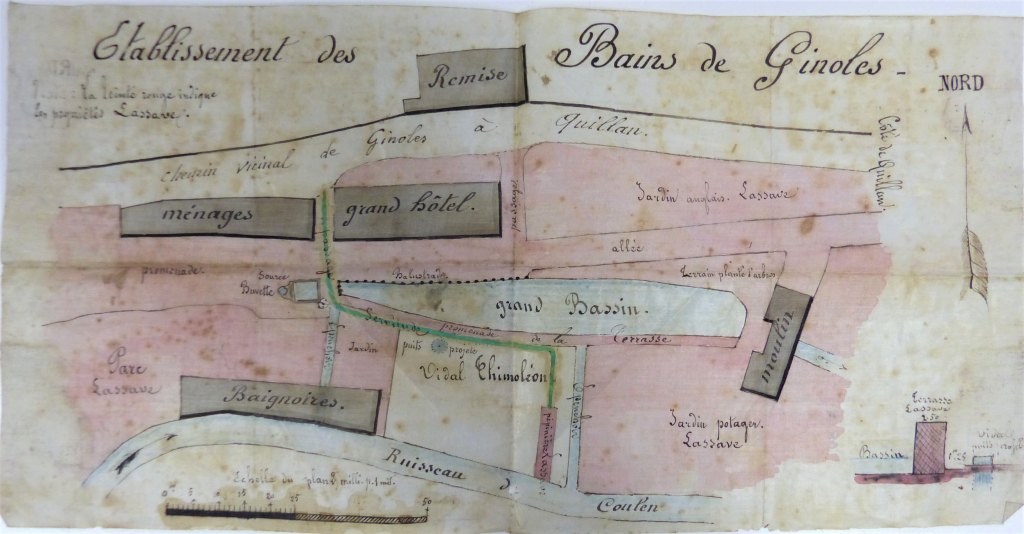 Etablissement des Bains de Ginoles -
NORD
La teinte rouge indique
les propriétés Lassave.
Remise
chemin vicinal de Ginoles à Quillan.
Côté de Quillan.
ménages
grand hôtel.
passage
Jardin anglais. Lassave
allée
promenade.
Source
Buvette
Balustrade
Terrain planté d'arbres
grand Bassin.
Servitude
promenade de la Terrasse
moulin
Parc
Lassave
Jardin
puits projeté
Vidal Thimoléon
Baignoires.
Jardin potager.
Lassave
Terrasse
Lassave
2.50
Bassin
1m25
Vidal
puits projeté
Ruisseau de Coulen
Echelle du plan 2 millim. p. 1 mèt.
0 5 10 15 20 25 50